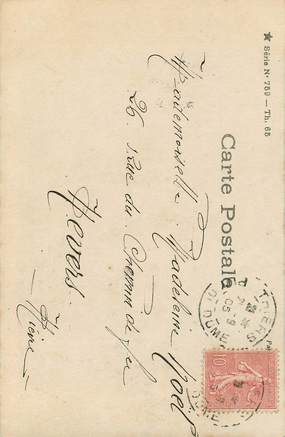 ★ Série N° 759 — Th. 65
Carte Postale
Mademoiselle Madeleine Noël
26 Rue du Chemin de fer
Nevers
— Nièvre —
THIERS
PUY-DE-DOME
10